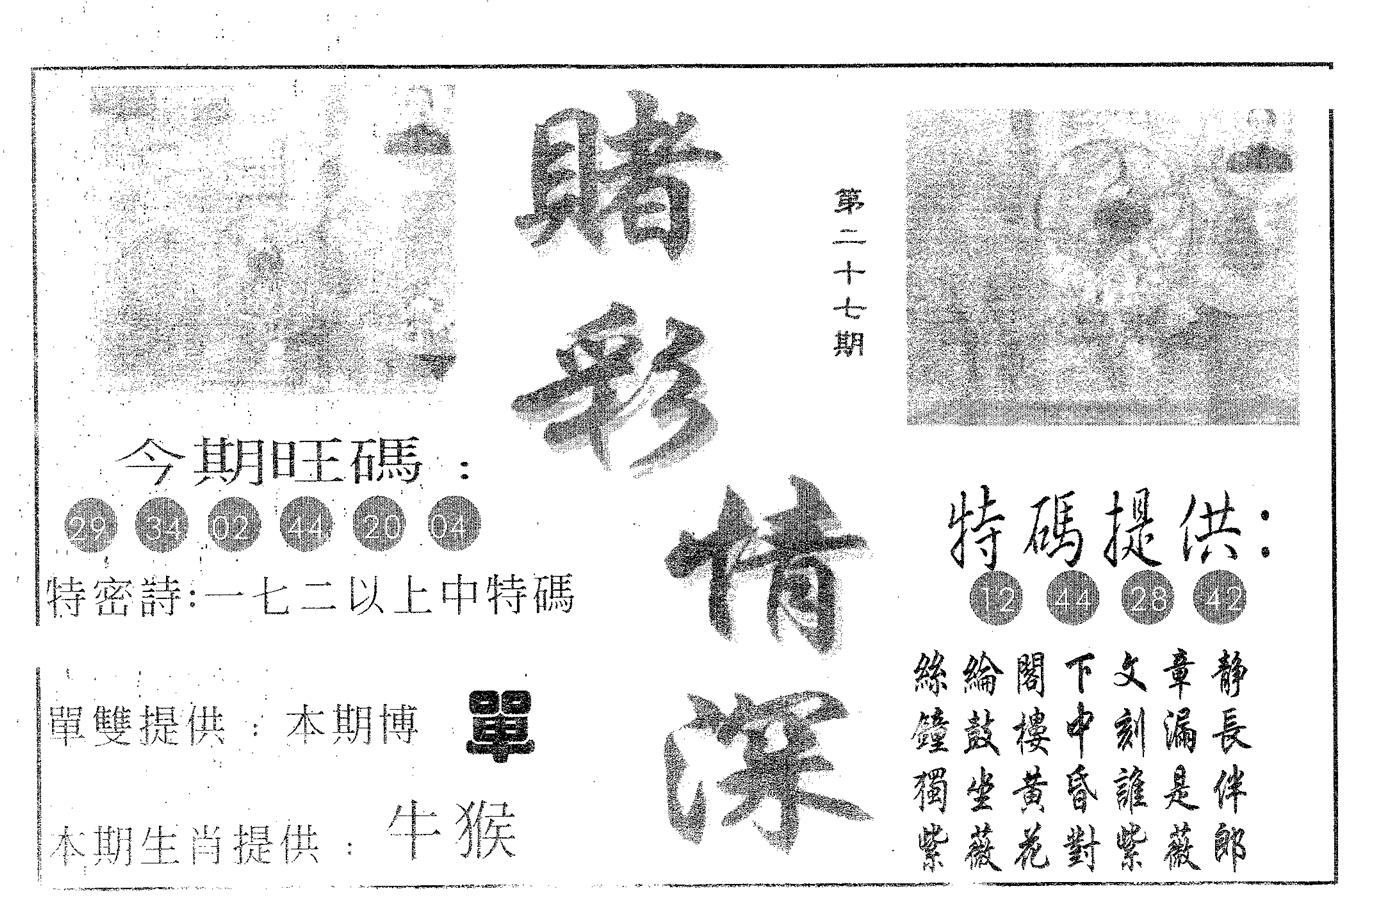 賭彩情深
第二十七期
今期旺碼：
29 34 02 44 20 04
特密詩:一七二以上中特碼
單雙提供：本期博 單
本期生肖提供：牛猴
特碼提供:
12 44 28 42
絲綸閣下文章靜
鐘鼓樓中刻漏長
獨坐黃昏誰是伴
紫薇花對紫薇郎